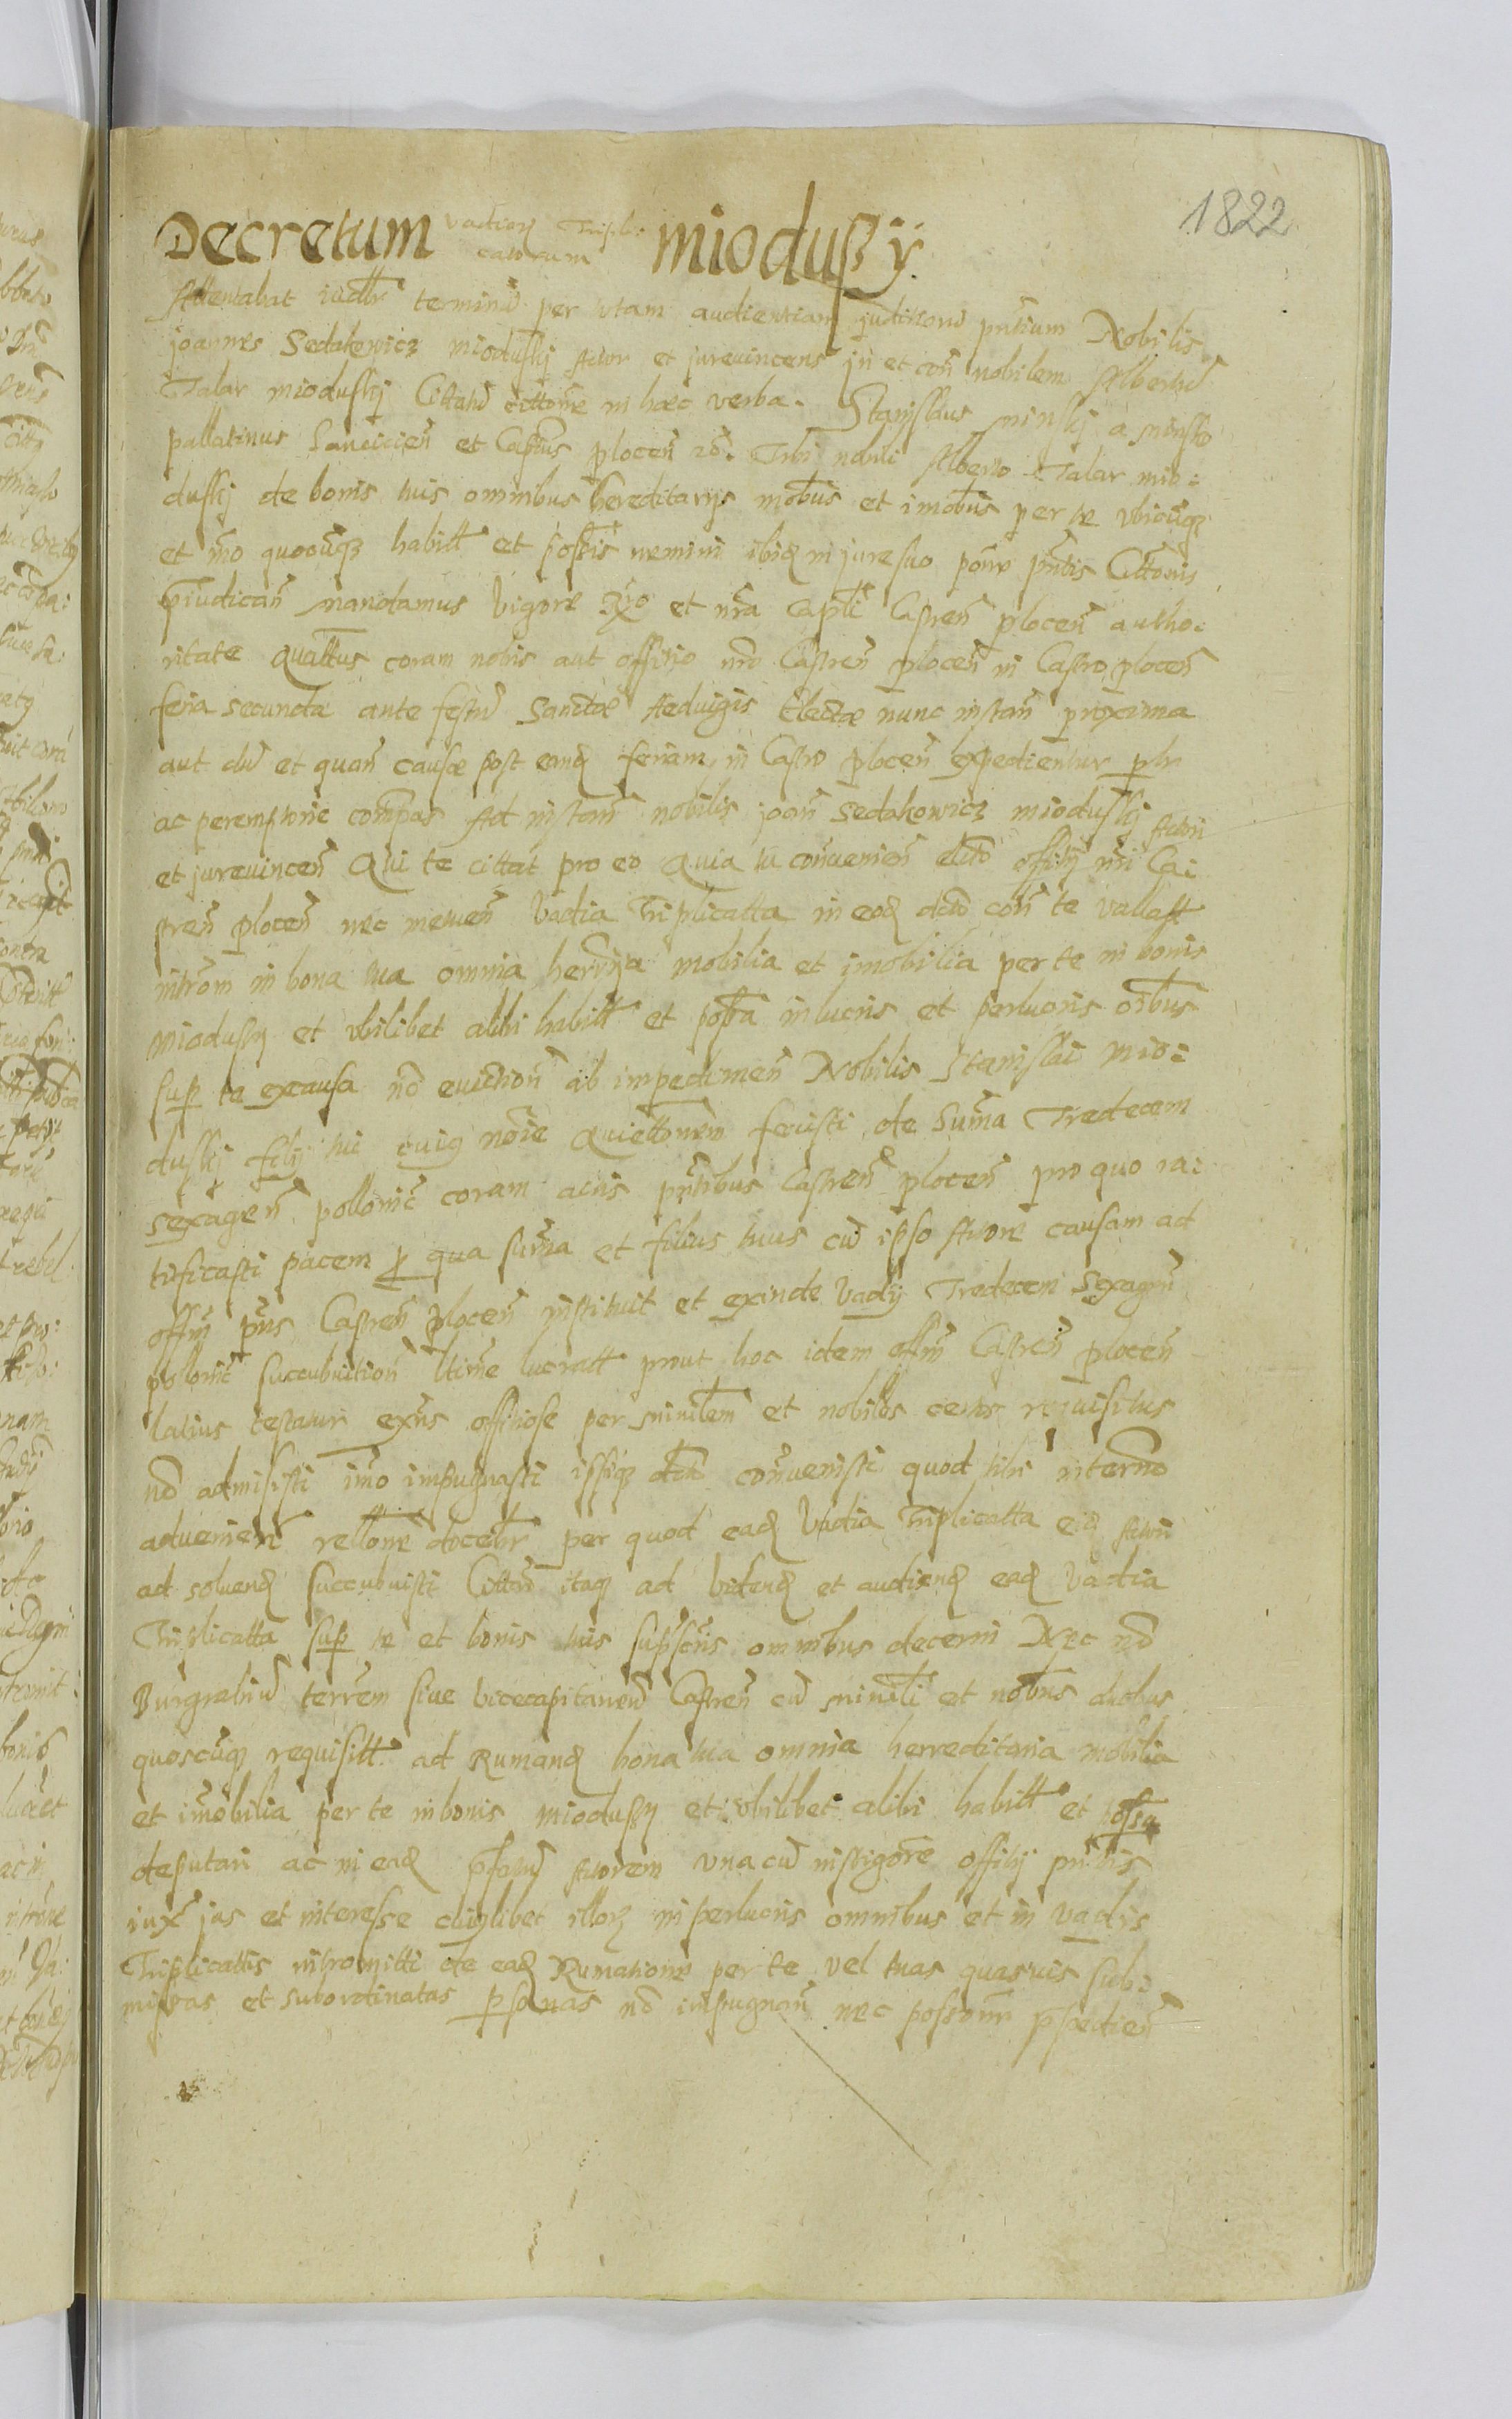 1822
Decretum vadiorum Tripli: catorum miodussy
Attentabat iudlr terminū per totam audientiam juditiorū pntium Nobilis
joannes Sedakowicz mioduskj Actor et jurevincens jn et con nobilem Albertū
Talar mioduskj Cittatū cittone in haec verba. Stanislaus minskj a minsko
pallatinus Lancicien et Captus plocen 2o. Tibi nobili Alberto Talar mio:
duskj de bonis tuis omnibus hereditarys mobus et imobus per te vbicūqz
et mo quocūqz habitt et possis nemini ibiq in jure suo pone pntis Cittonis
piudican mandamus Vigore et nra Capli Castren plocen autho:
ritate Quattus coram nobis aut offitio nro Castren plocen in Castro plocen
feria secunda ante festū Sanctae Heduigis Electae nunc instan proxima
aut dū et quan causae post eanq feriam in Castro plocen expedientur plr
ac peremptorie compas Ad instan nobilis joan Sedakowicz mioduskj Actori
et jurevincen Qui te cittat pro eo Quia tu convenien dcto offitij nri Ca:
stren plocen nec metuen Vadia Triplicatta in eoq dcto con te vallatt
introm in bona tua omnia herrija mobilia et imobilia per te in bonis
miodussy et vbilibet alibi habitt et possa in lucris et perlucris oibus
sup te ex causa no euiction ab impedimen Nobilis Stanislai mio:
duskj filij tui cuiq noie Quiettonem fecisti de Suma Tredecem
sexagen pollonic coram actis pntibus Castren plocen pro quo ra:
tificasti pacem p qua suma et filius tuus cū ipso Actore causam ad
offm pns Castren plocen instituit et exinde Vadij Tredecem Sexagen
pollonic succubuition ltime lucratt prout hoc idem offm Castren plocen
latius testatur exns offitiose per minilem et nobiles certos requisitus
no admisisti imo impugnasti issiqz dcto convenisti quod tibi in termno
advenien rellone docebr per quod eaq Vadia Triplicatta eiq Actori
ad soluenq succubuisti Cittan itaqz ad videnq et audienq eaq Vadia
Triplicatta sup te et bonis tuis supscris omnibus decerni Nec no
Burgrabiū terrem siue vicecapitaneū Castren cū minili et nobus duobus
quoscūqz requisitt ad Rumanq bona tua omnia herreditaria mobilia
et imobilia per te in bonis miodussy et vbilibet alibi habitt et possa
deputari ac in eaq pfatū Actorem vna cū instigore offitij pntis
iux jus et interesse cuiqlibet illorz in perlucris omnibus et in vadijs
Triplicattis intromitti de eaq Rumatione per te vel tuas quasuis sub:
missas et subordinatas psonas no impugnan nec possonm pspedien